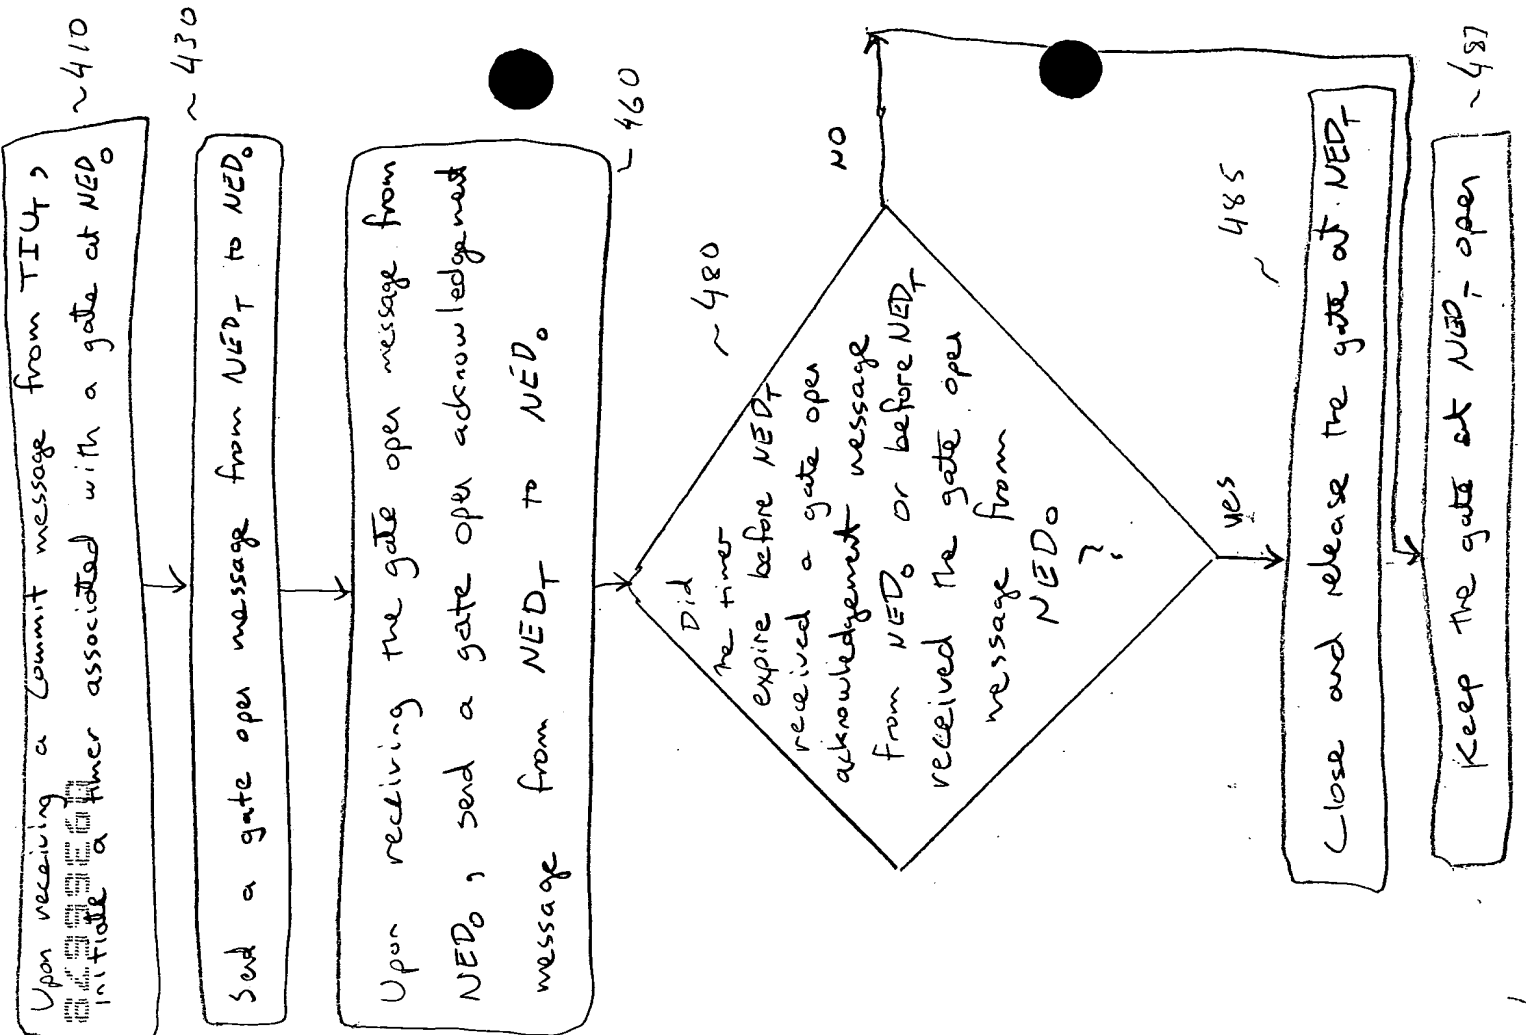 Upon receiving a Commit message from TIU_T,
initiate a timer associated with a gate at NED_O
~410
Send a gate open message from NED_T to NED_O
~430
Upon receiving the gate open message from
NED_O, send a gate open acknowledgment
message from NED_T to NED_O
~460
Did
the timer
expire before NED_T
received a gate open
acknowledgement message
from NED_O or before NED_T
received the gate open
message from
NED_O
?
~480
NO
yes
Close and release the gate at NED_T
~485
Keep the gate at NED_T open
~487